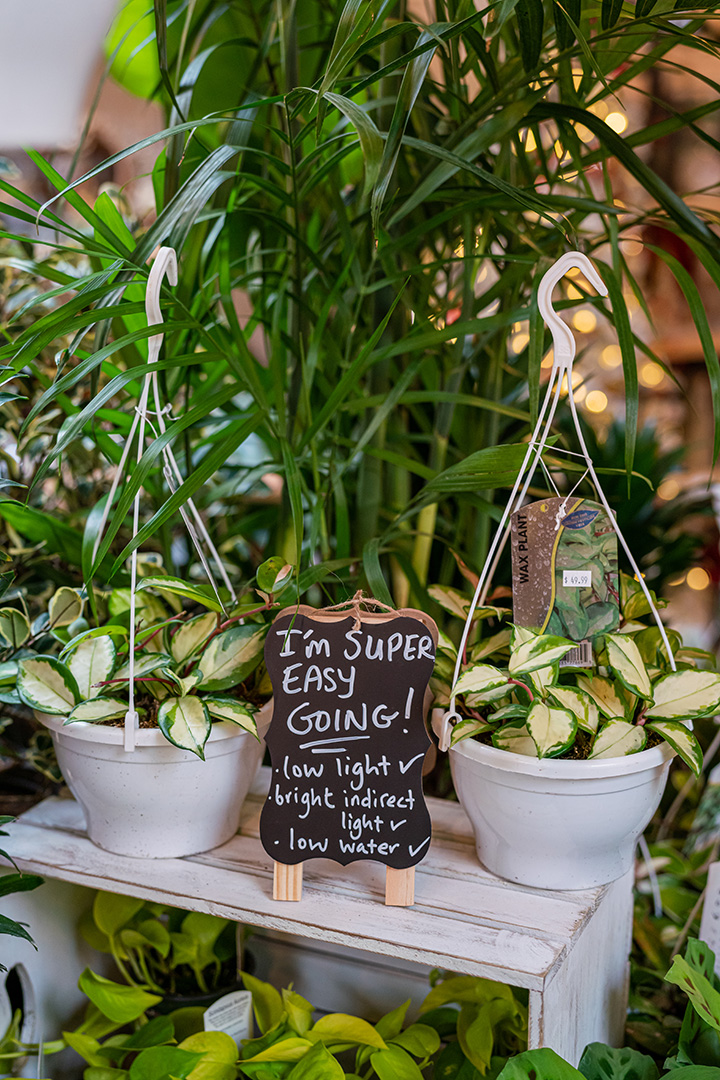 WAX PLANT
$ 49.99
I'm SUPER
EASY
GOING!
· low light ✓
· bright indirect
light ✓
· low water ✓